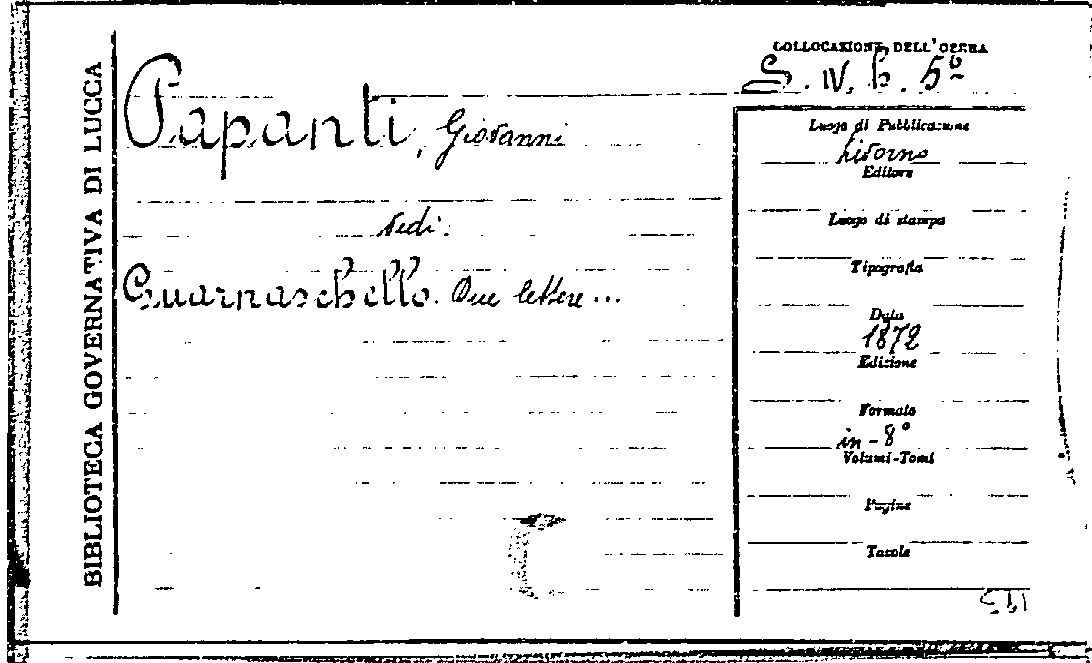 BIBLIOTECA GOVERNATIVA DI LUCCA
COLLOCAZIONE DELL'OPERA
S. IV. b. 5º
Papanti, Giovanni
vedi:
Guarnaschello. Due lettere...
Luogo di Pubblicazione
Livorno
Editore
Luogo di stampa
Tipografia
Data
1872
Edizione
Formato
in-8°
Volumi-Tomi
Pagine
Tavole